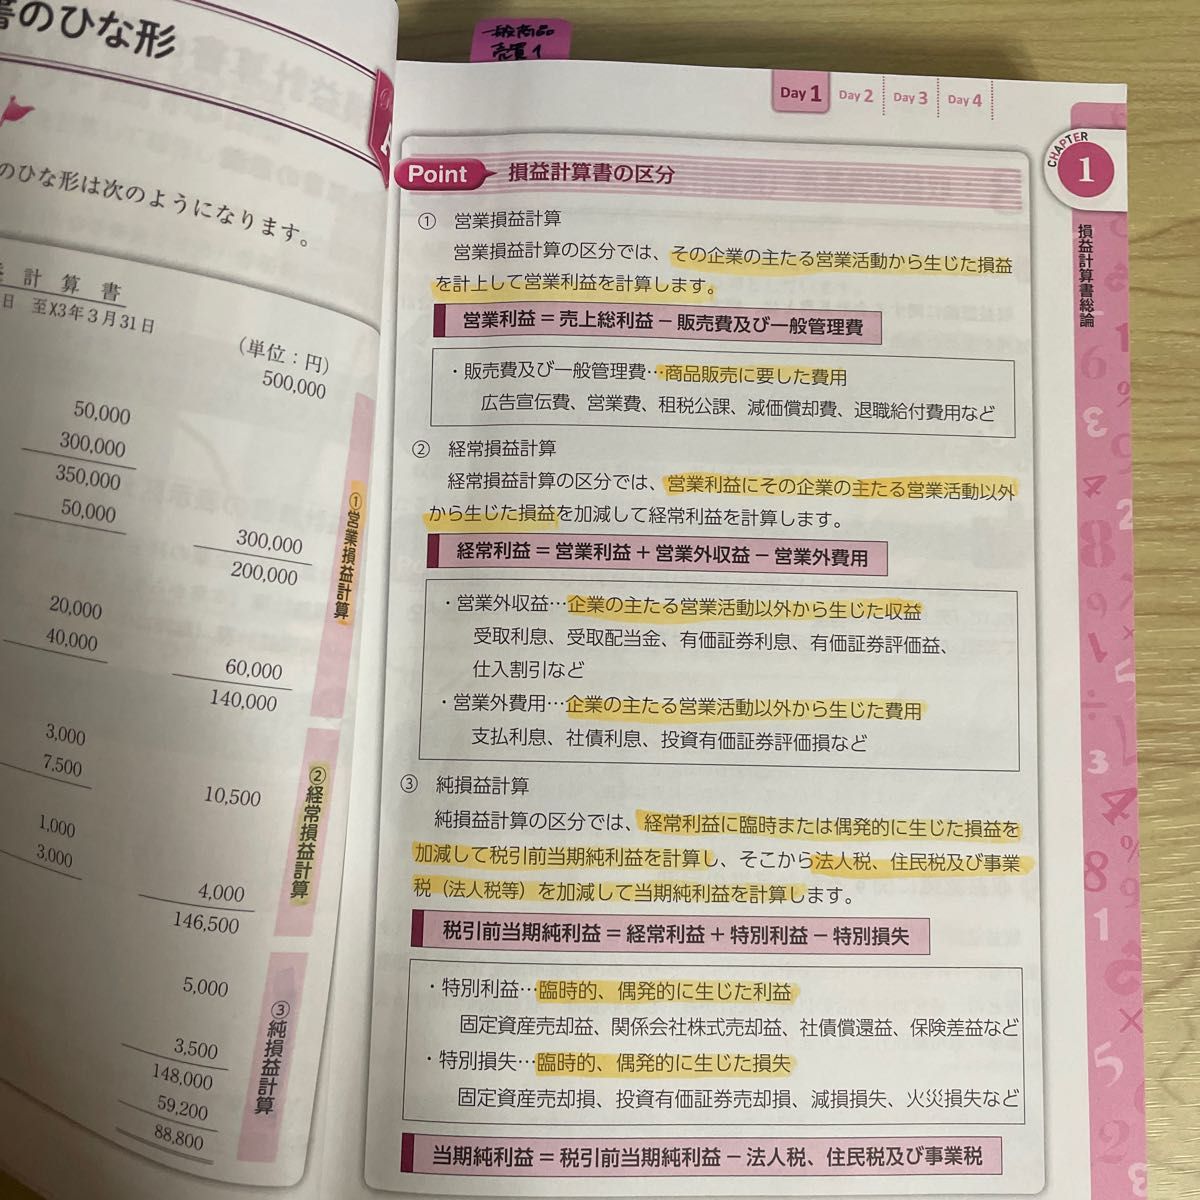 書のひな形
のひな形は次のようになります。
計 算 書
日 至X3年3月31日
(単位：円)
500,000
50,000
300,000
350,000
50,000
300,000
200,000
20,000
40,000
60,000
140,000
3,000
7,500
10,500
1,000
3,000
4,000
146,500
5,000
3,500
148,000
59,200
88,800
①営業損益計算
②経常損益計算
③純損益計算
一般商品
売買1
Day 1 Day 2 Day 3 Day 4
CHAPTER
1
損益計算書総論
Point 損益計算書の区分
① 営業損益計算
営業損益計算の区分では、その企業の主たる営業活動から生じた損益
を計上して営業利益を計算します。
営業利益＝売上総利益－販売費及び一般管理費
・販売費及び一般管理費…商品販売に要した費用
広告宣伝費、営業費、租税公課、減価償却費、退職給付費用など
② 経常損益計算
経常損益計算の区分では、営業利益にその企業の主たる営業活動以外
から生じた損益を加減して経常利益を計算します。
経常利益＝営業利益＋営業外収益－営業外費用
・営業外収益…企業の主たる営業活動以外から生じた収益
受取利息、受取配当金、有価証券利息、有価証券評価益、
仕入割引など
・営業外費用…企業の主たる営業活動以外から生じた費用
支払利息、社債利息、投資有価証券評価損など
③ 純損益計算
純損益計算の区分では、経常利益に臨時または偶発的に生じた損益を
加減して税引前当期純利益を計算し、そこから法人税、住民税及び事業
税（法人税等）を加減して当期純利益を計算します。
税引前当期純利益＝経常利益＋特別利益－特別損失
・特別利益…臨時的、偶発的に生じた利益
固定資産売却益、関係会社株式売却益、社債償還益、保険差益など
・特別損失…臨時的、偶発的に生じた損失
固定資産売却損、投資有価証券売却損、減損損失、火災損失など
当期純利益＝税引前当期純利益－法人税、住民税及び事業税